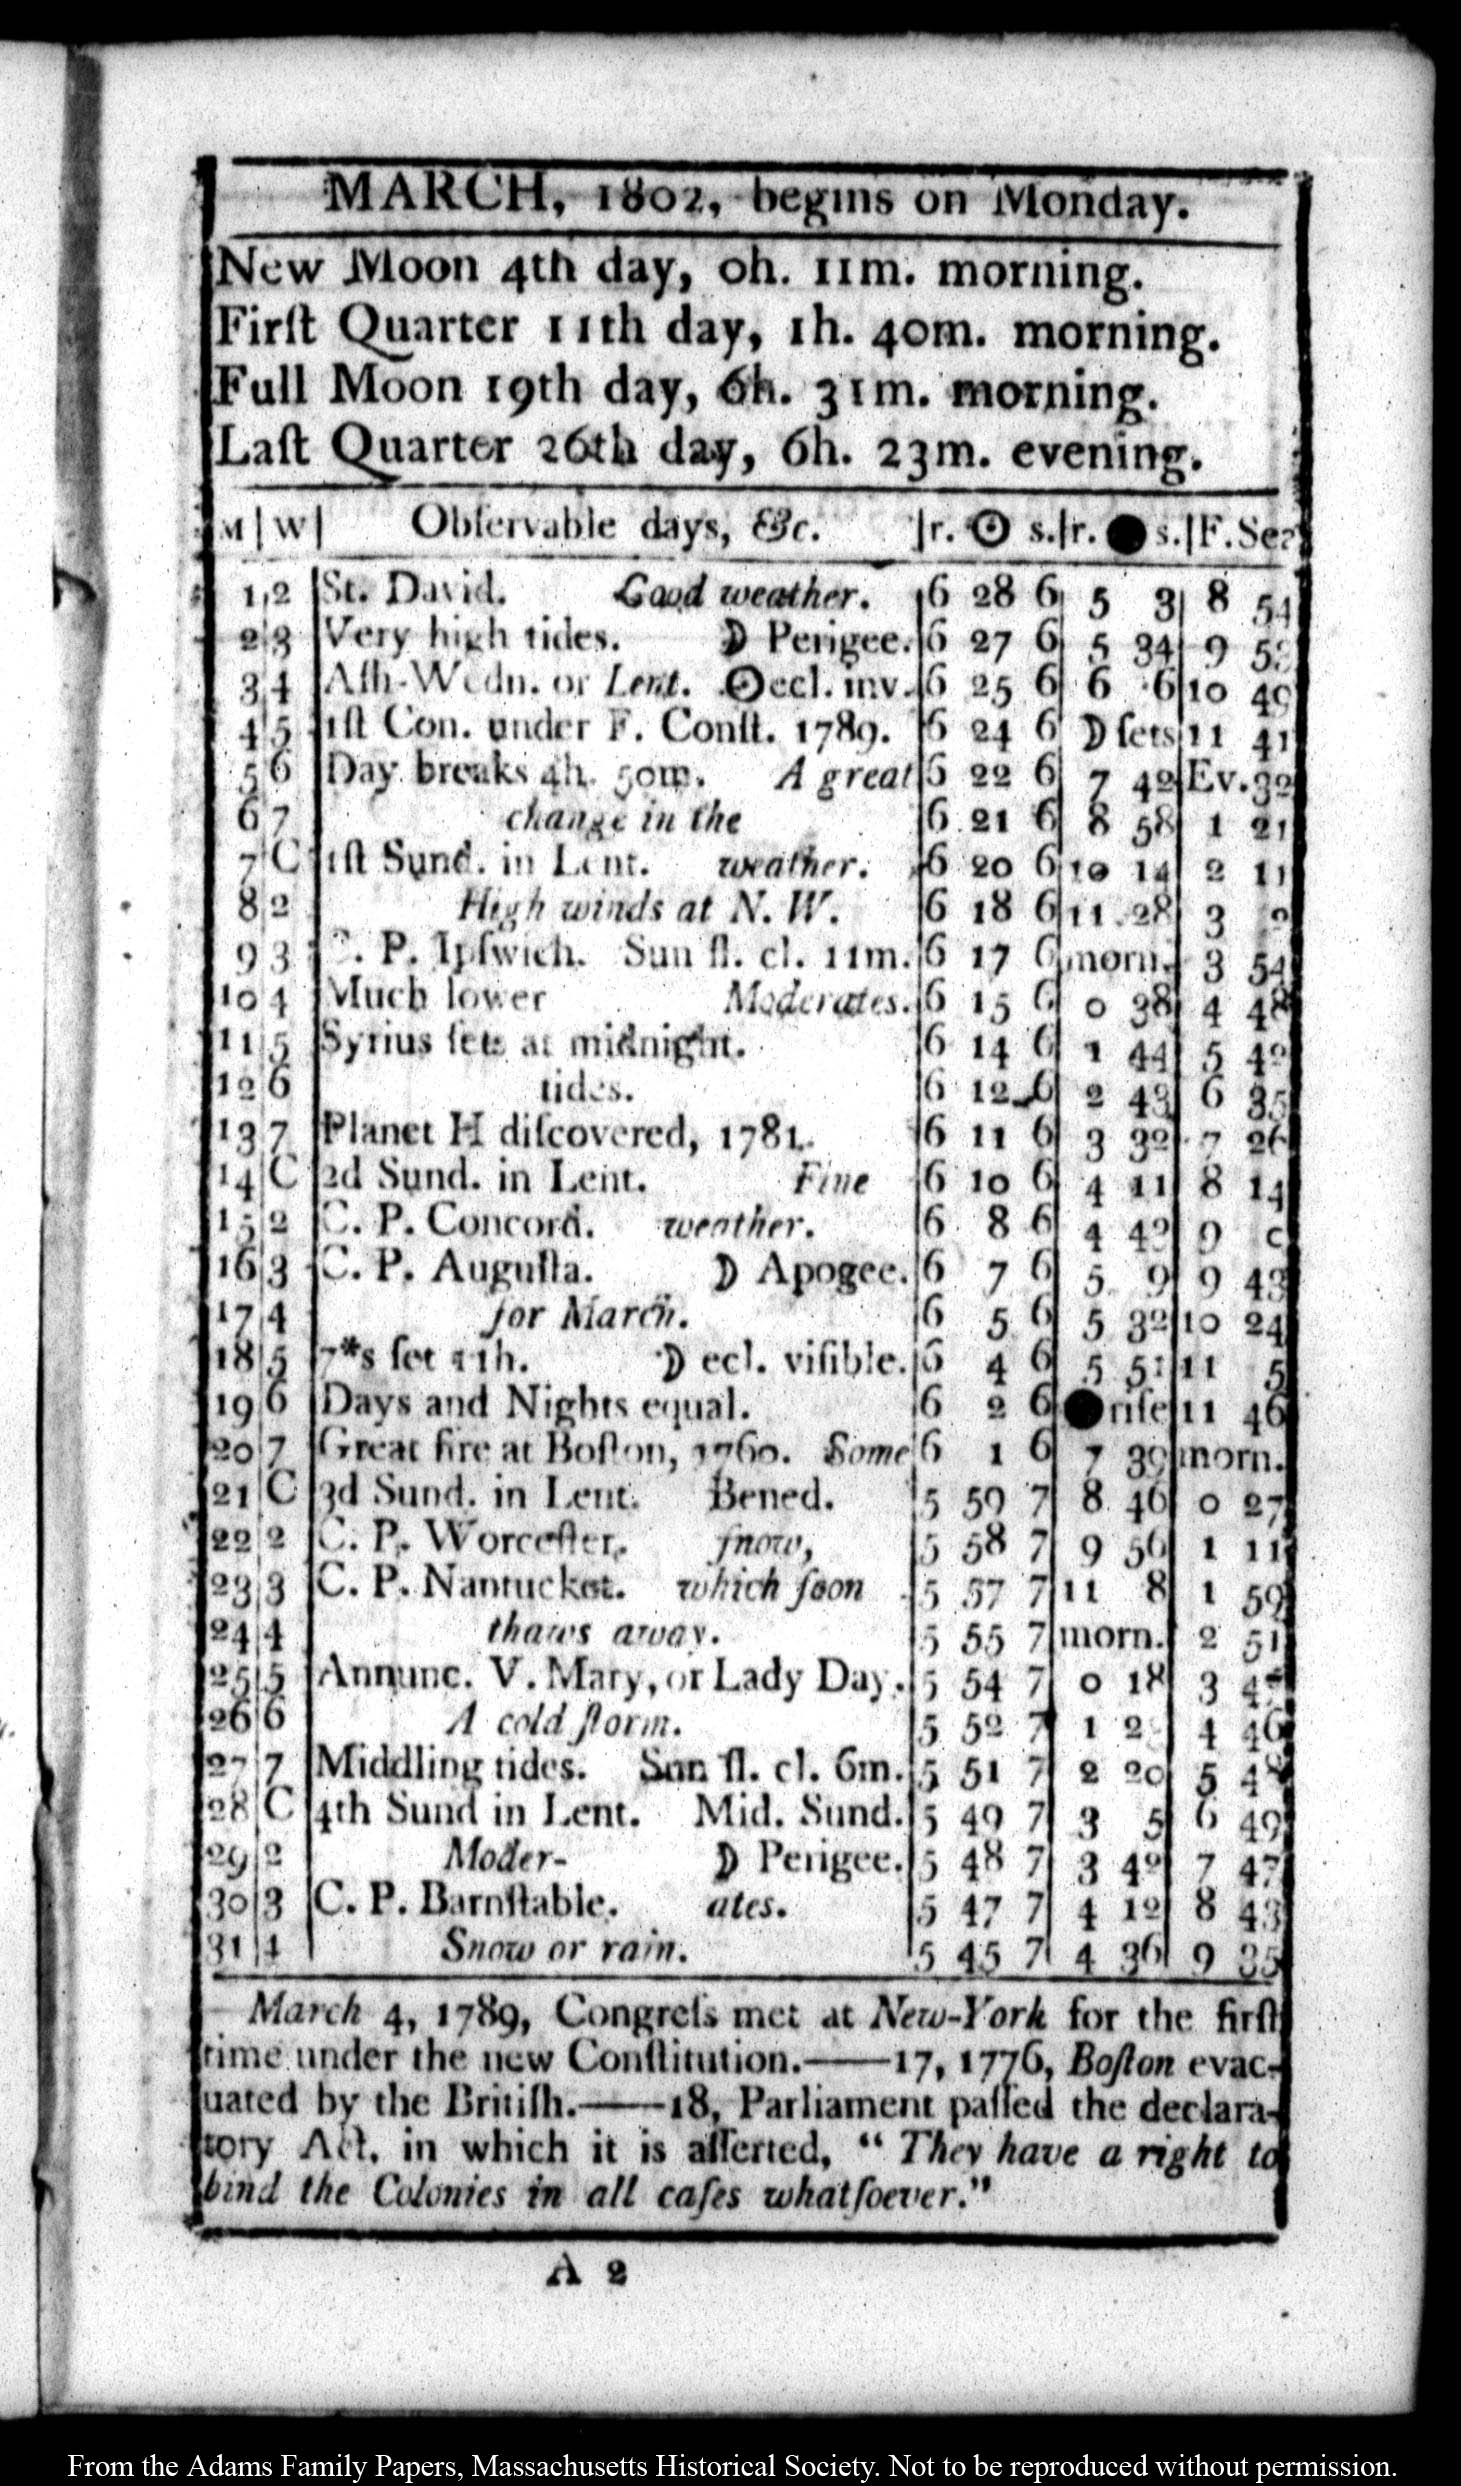 MARCH, 1802, begins on Monday.
New Moon 4th day, 0h. 11m. morning.
Firſt Quarter 11th day, 1h. 40m. morning.
Full Moon 19th day, 6h. 31m. morning.
Laſt Quarter 26th day, 6h. 23m. evening.
M | W | Obſervable days, &c. |r. ☉ s.|r. ● s.|F. Sea
1 2 St. David. Good weather. 6 28 6 5 3 8 54
2 3 Very high tides. ☽ Perigee. 6 27 6 5 34 9
3 4 Aſh-Wedn. or Lent. ☉ ecl. inv. 6 25 6 6 6 10 49
4 5 1ſt Con. under F. Conſt. 1789. 6 24 6 ☽ ſets 11 41
5 6 Day breaks 4h. 50m. A great 6 22 6 7 42 Ev. 32
6 7 change in the 6 21 6 8 58 1 21
7 C 1ſt Sund. in Lent. weather. 6 20 6 10 14 2 11
8 2 High winds at N. W. 6 18 6 11 28 3
9 3 C. P. Ipſwich. Sun ſl. cl. 11m. 6 17 6 morn. 3 54
10 4 Much lower Moderates. 6 15 6 0 38 4 48
11 5 Syrius ſets at midnight. 6 14 6 1 44 5 42
12 6 tides. 6 12 6 2 43 6 35
13 7 Planet H diſcovered, 1781. 6 11 6 3 32 7 26
14 C 2d Sund. in Lent. Fine 6 10 6 4 11 8 14
15 2 C. P. Concord. weather. 6 8 6 4 43 9
16 3 C. P. Auguſta. ☽ Apogee. 6 7 6 5 9 9 43
17 4 for March. 6 5 6 5 32 10 24
18 5 7*s ſet 11h. ☽ ecl. viſible. 6 4 6 5 51 11 5
19 6 Days and Nights equal. 6 2 6 ● riſe 11 46
20 7 Great fire at Boſton, 1760. Some 6 1 6 7 39 morn.
21 C 3d Sund. in Lent. Bened. 5 59 7 8 46 0 27
22 2 C. P. Worceſter. ſnow, 5 58 7 9 56 1 11
23 3 C. P. Nantucket. which ſoon 5 57 7 11 8 1 59
24 4 thaws away. 5 55 7 morn. 2 51
25 5 Annunc. V. Mary, or Lady Day. 5 54 7 0 18 3
26 6 A cold ſtorm. 5 52 7 1 4 46
27 7 Middling tides. Sun ſl. cl. 6m. 5 51 7 2 20 5 48
28 C 4th Sund in Lent. Mid. Sund. 5 49 7 3 5 6 49
29 2 Moder- ☽ Perigee. 5 48 7 3 42 7 47
30 3 C. P. Barnſtable. ates. 5 47 7 4 12 8 43
31 4 Snow or rain. 5 45 7 4 36 9 35
March 4, 1789, Congreſs met at New-York for the firſt
time under the new Conſtitution.——17, 1776, Boſton evac-
uated by the Britiſh.——18, Parliament paſſed the declara-
tory Act, in which it is aſſerted, "They have a right to
bind the Colonies in all caſes whatſoever."
A 2
From the Adams Family Papers, Massachusetts Historical Society. Not to be reproduced without permission.